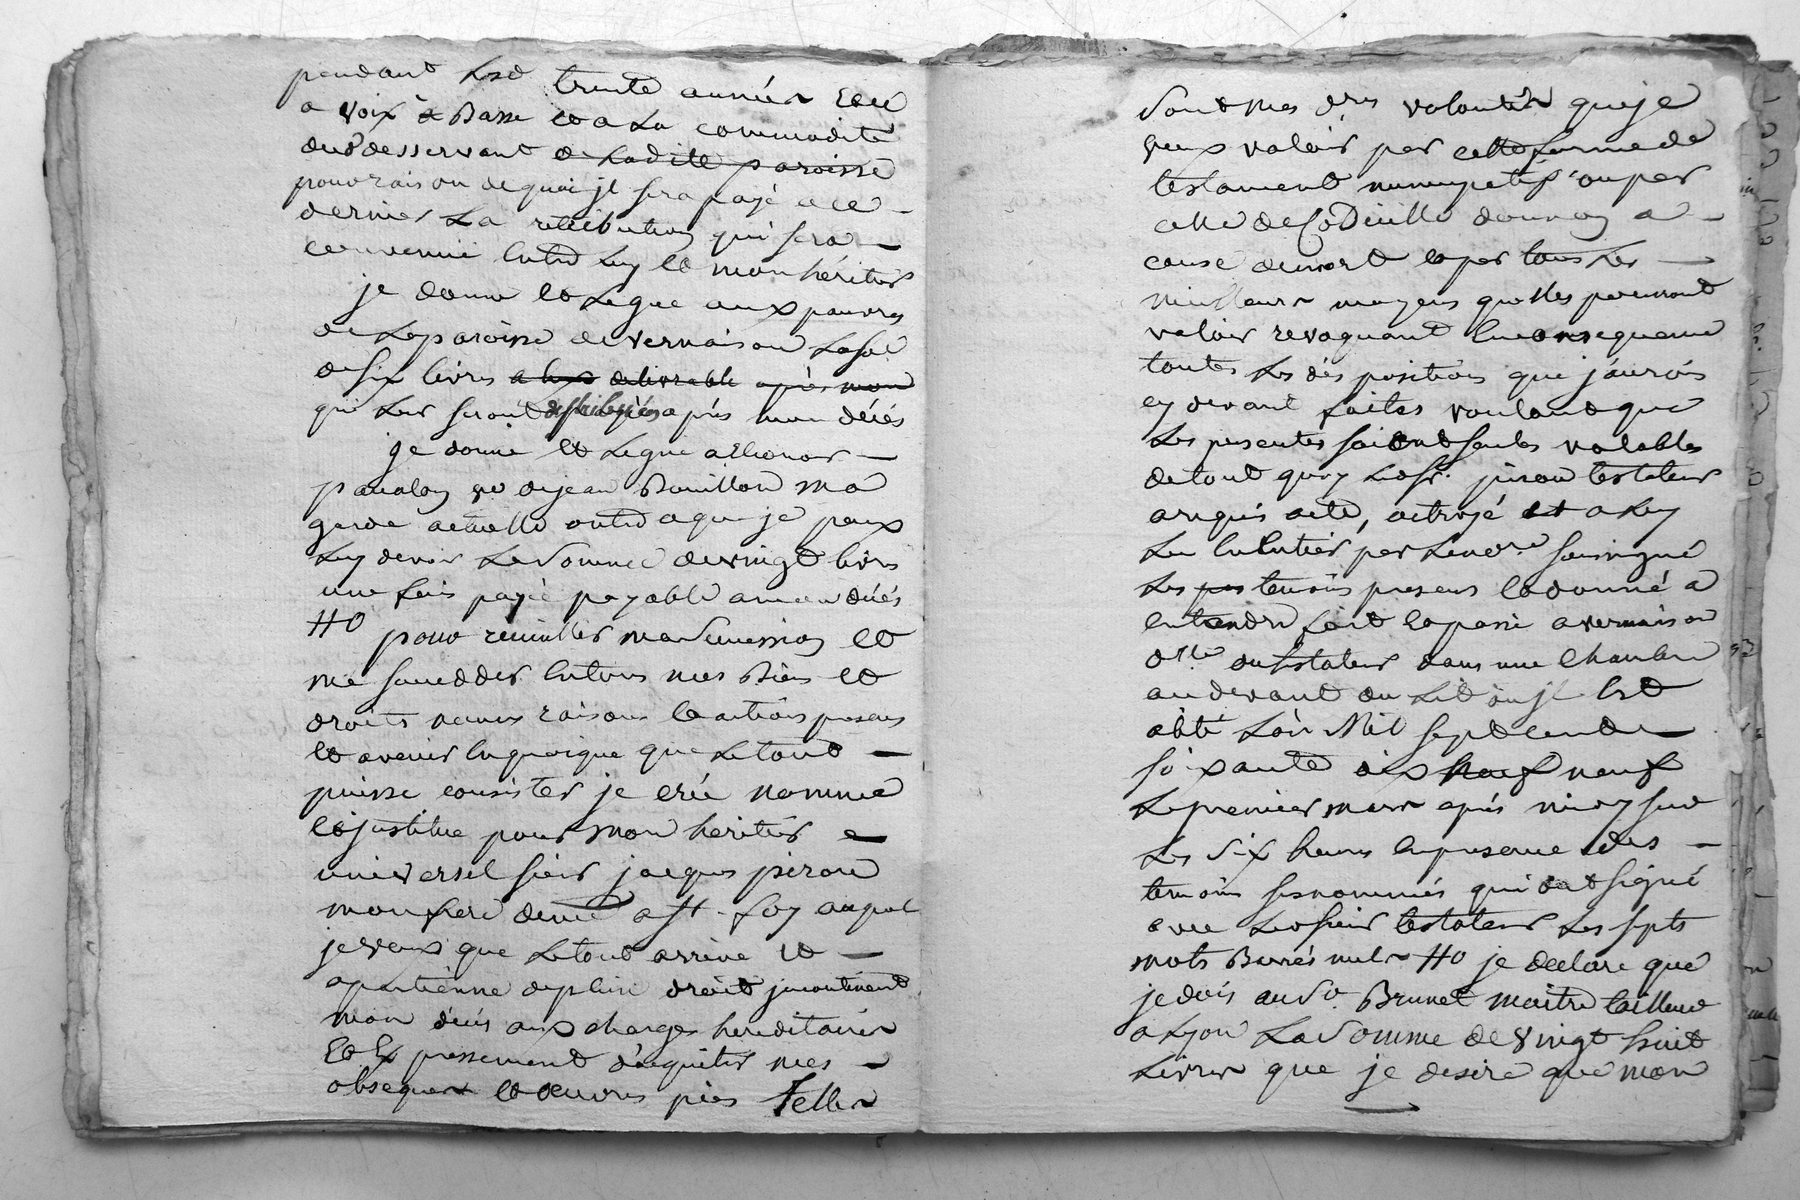 pendant lesd trente années Et ce
a voix Basse et a La commodité
dud desservant de Ladite paroisse
pour raison de quoi jl sera payé a ce
dernier La retribution qui sera
convenue Entre Luy et mon héritier
je donne et Legue aux pauvres
de La paroisse de vernaison La so
de six livres a eux delivrable après mon
qui Leur seront distribuées après mon décés
je donne et Legue a Elionor
ve de jean Bouillon ma
garde actuelle outre a que je peux
Luy devoir La somme de vingt livres
une fois payée payable a mon décés
HO pour recueillir ma succession et
me succedder En tous mes Biens et
droits noms raisons et actions presens
et avenir En quoi que que Le tout
puisse consister je crée nomme
et jnstitue pour mon heritier
universel sieur jacques piron
mon frere demt a St foy auquel
je veux que Le tout arrive et
apartienne de plein droit jncontinent
mon décés aux charges hereditaires
Et Expressement d'aquiter mes
obseques et œuvres pies Telles
sont mes dres volontés que je
veux valoir par cette forme de
testament nuncupatif ou par
celle de CoDicille donnaon a
cause de mort et par tous Les
meilleurs moyens qu'elles pourront
valoir revoquant En consequence
toutes Les dispositions que j'aurois
cy devant faites voulant que
Les presentes soient seules valables
de tout quoy Led Sr piron testateur
a requis acte, octroyé et a Luy
Lu En Entier par Le nore soussigné
Les temoins presens et donné a
Entendre fait et passé a vernaison
dle du testateur dans une Chambre
au devant du Lit ou jl Est
alité L'an Mil sept cent
soixante dix neuf
Le premier mars après midy sur
Les six heures En presence des
temoins susnommés qui ont signé
avec Led sieur testateur Les septs
mots Barrés nuls HO je declare que
je dois au Sr Brunet maitre tailleur
a Lyon La somme de vingt huit
Livres que je desire que mon